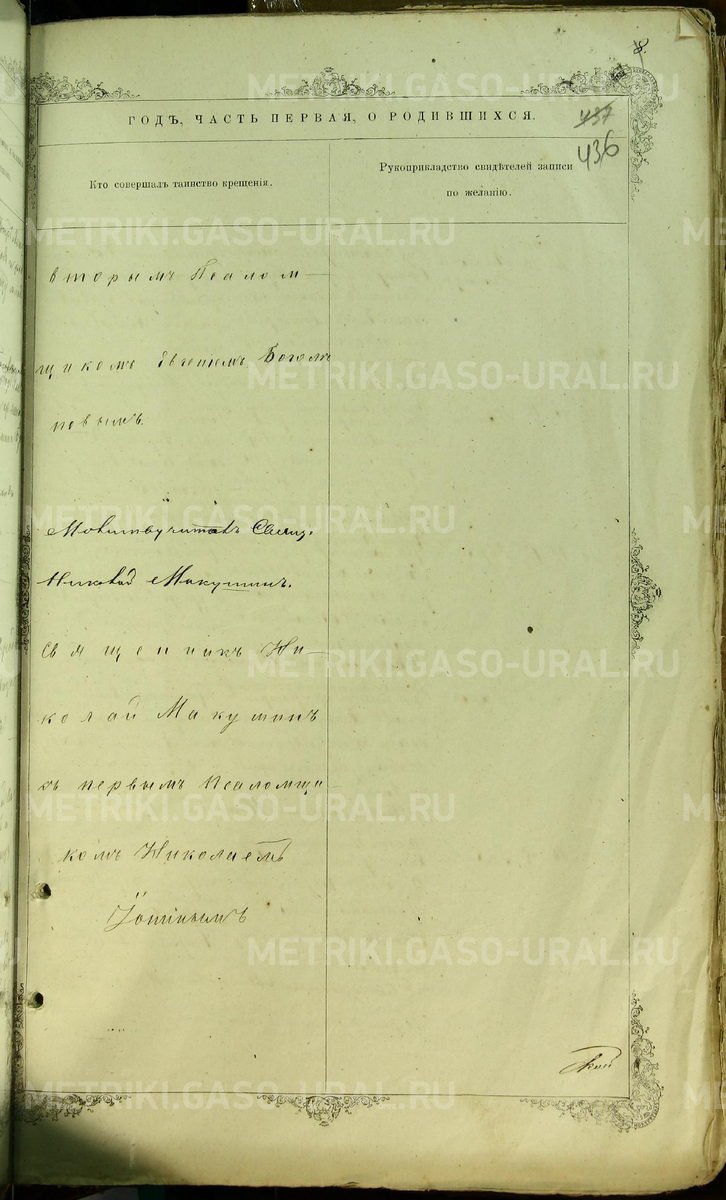 8.
ГОДЪ, ЧАСТЬ ПЕРВАЯ, О РОДИВШИХСЯ.
437
436
Кто совершалъ таинство крещенія.
Рукоприкладство свидѣтелей записи
по желанію.
вторымъ Псалом-
щикомъ Евгеніемъ Богом
повымъ.
Молитвоучит Свящ.
Николай Макушинъ.
Священникъ Ни-
колай Макушинъ
съ первымъ Псаломщи-
комъ Николаемъ
METRIKI.GASO-URAL.RU